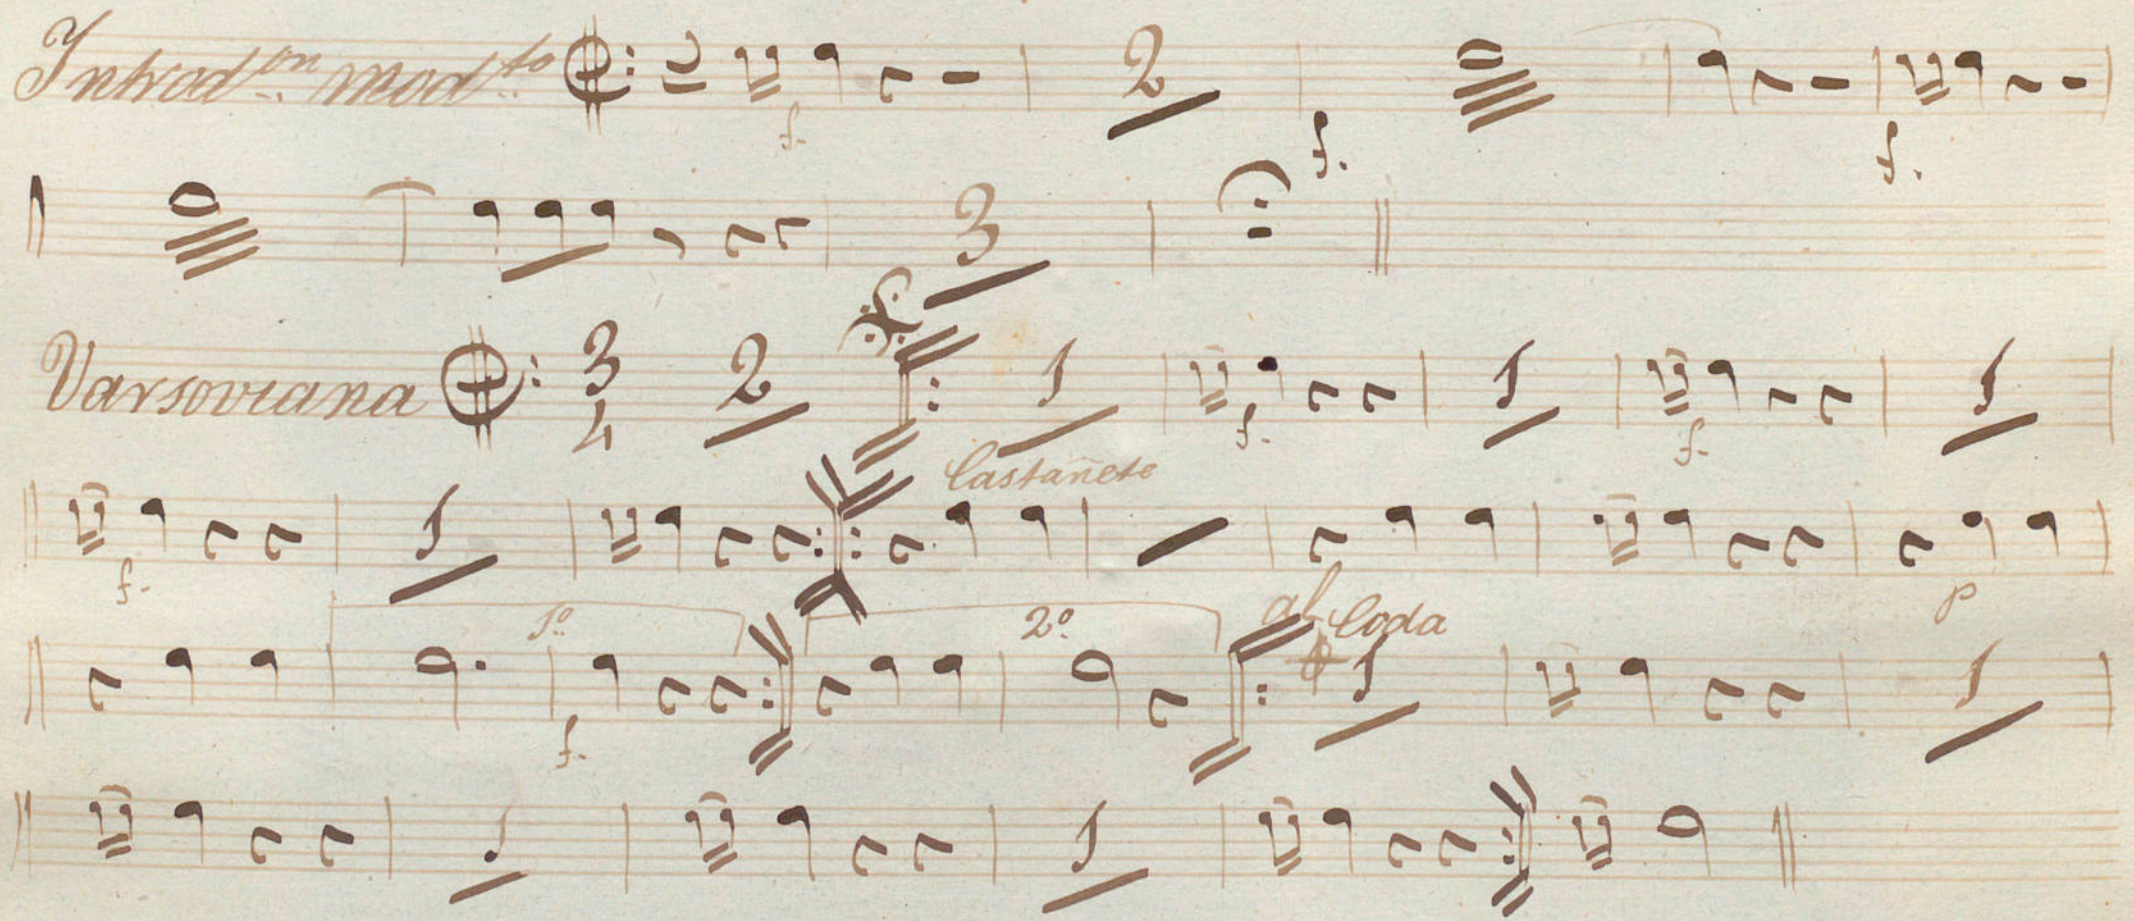 Introdon.. Modto.. 2 f. f. f.
3
Varsoviana 3 4 2 1 f. 1 f. 1
Castañete
f. 1 p
1o. 2o. al Coda
f. 1 1
1 1